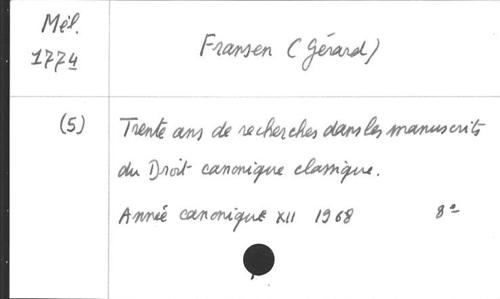 Mél.
1774
Fransen (Gérard)
(5)
Trente ans de recherches dans les manuscrits
du Droit canonique classique.
Année canonique XII 1968 8°